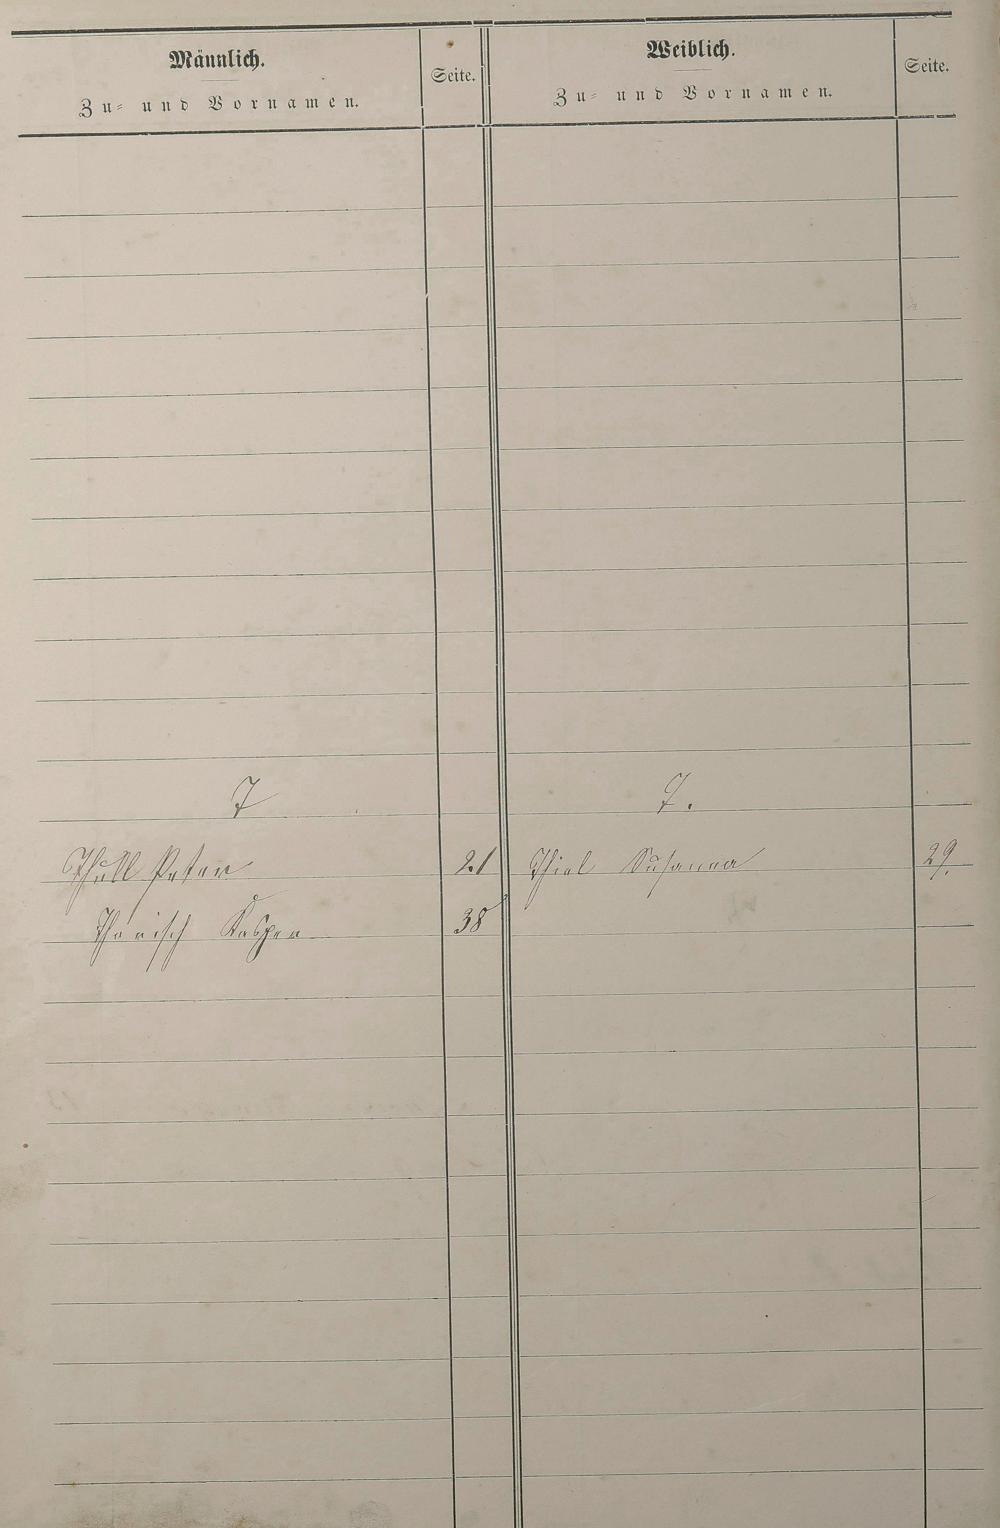 Männlich.
Zu- und Vornamen.
Seite.
Weiblich.
Zu- und Vornamen.
Seite.
T
T.
Thull Peter 21
Thiel Susanna 29.
Kasper 38